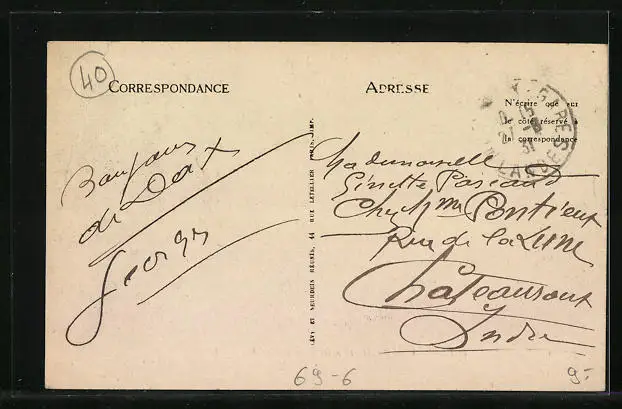 40
CORRESPONDANCE
ADRESSE
N'écrire que sur
le côté réservé à
la correspondance
GARE
LANDES
Bonjour
de Dax
Georges
LÉVY ET NEURDEIN RÉUNIS, 44 RUE LETELLIER PARIS, IMP.
Mademoiselle
Ginette
Chez Mm Pontient
Rue de la Lune
Châteauroux
Indre
69-6
9-